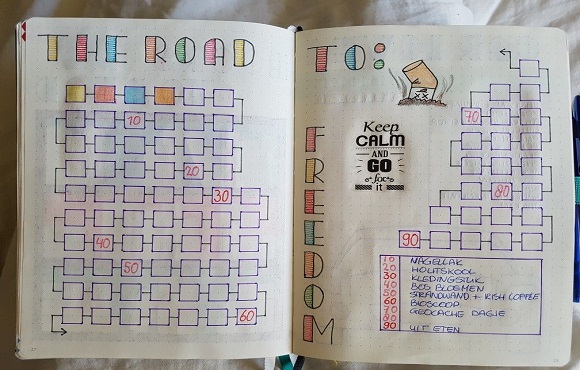 THE ROAD
10
20
30
40
50
60
TO:
FREEDOM
Keep
CALM
AND
GO
for
it
70
80
90
10 NAGELLAK
20 HOUTSKOOL
30 KLEDINGSTUK
40 BOS BLOEMEN
50 STRANDWAND + IRISH COFFEE
60 BIOSCOOP
70 GEOCACHE DAGJE
80
90 UIT ETEN